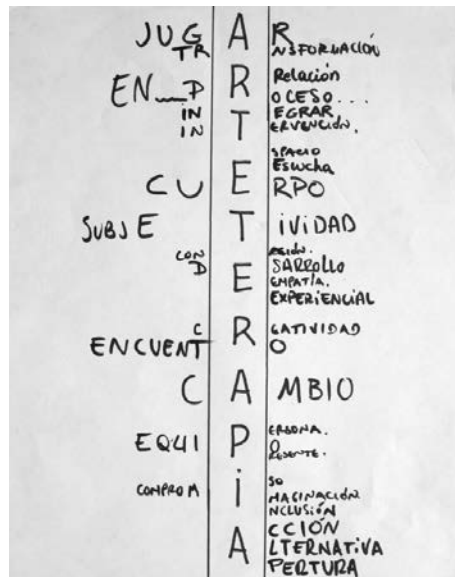 JUG A R
TR NSFORMACIÓN
Relación
EN__P R OCESO...
IN T EGRAR
IN ERVENCIÓN.
SPACIO
Escucha
CU E RPO
SUBJE T IVIDAD
CON
D E SARROLLO
EMPATÍA.
EXPERIENCIAL
C R EATIVIDAD
ENCUENT O
C A MBIO
ERSONA.
EQUI P O
RESENTE.
COMPROM i SO
MAGINACIÓN
NCLUSIÓN
CCIÓN
A LTERNATIVA
PERTURA